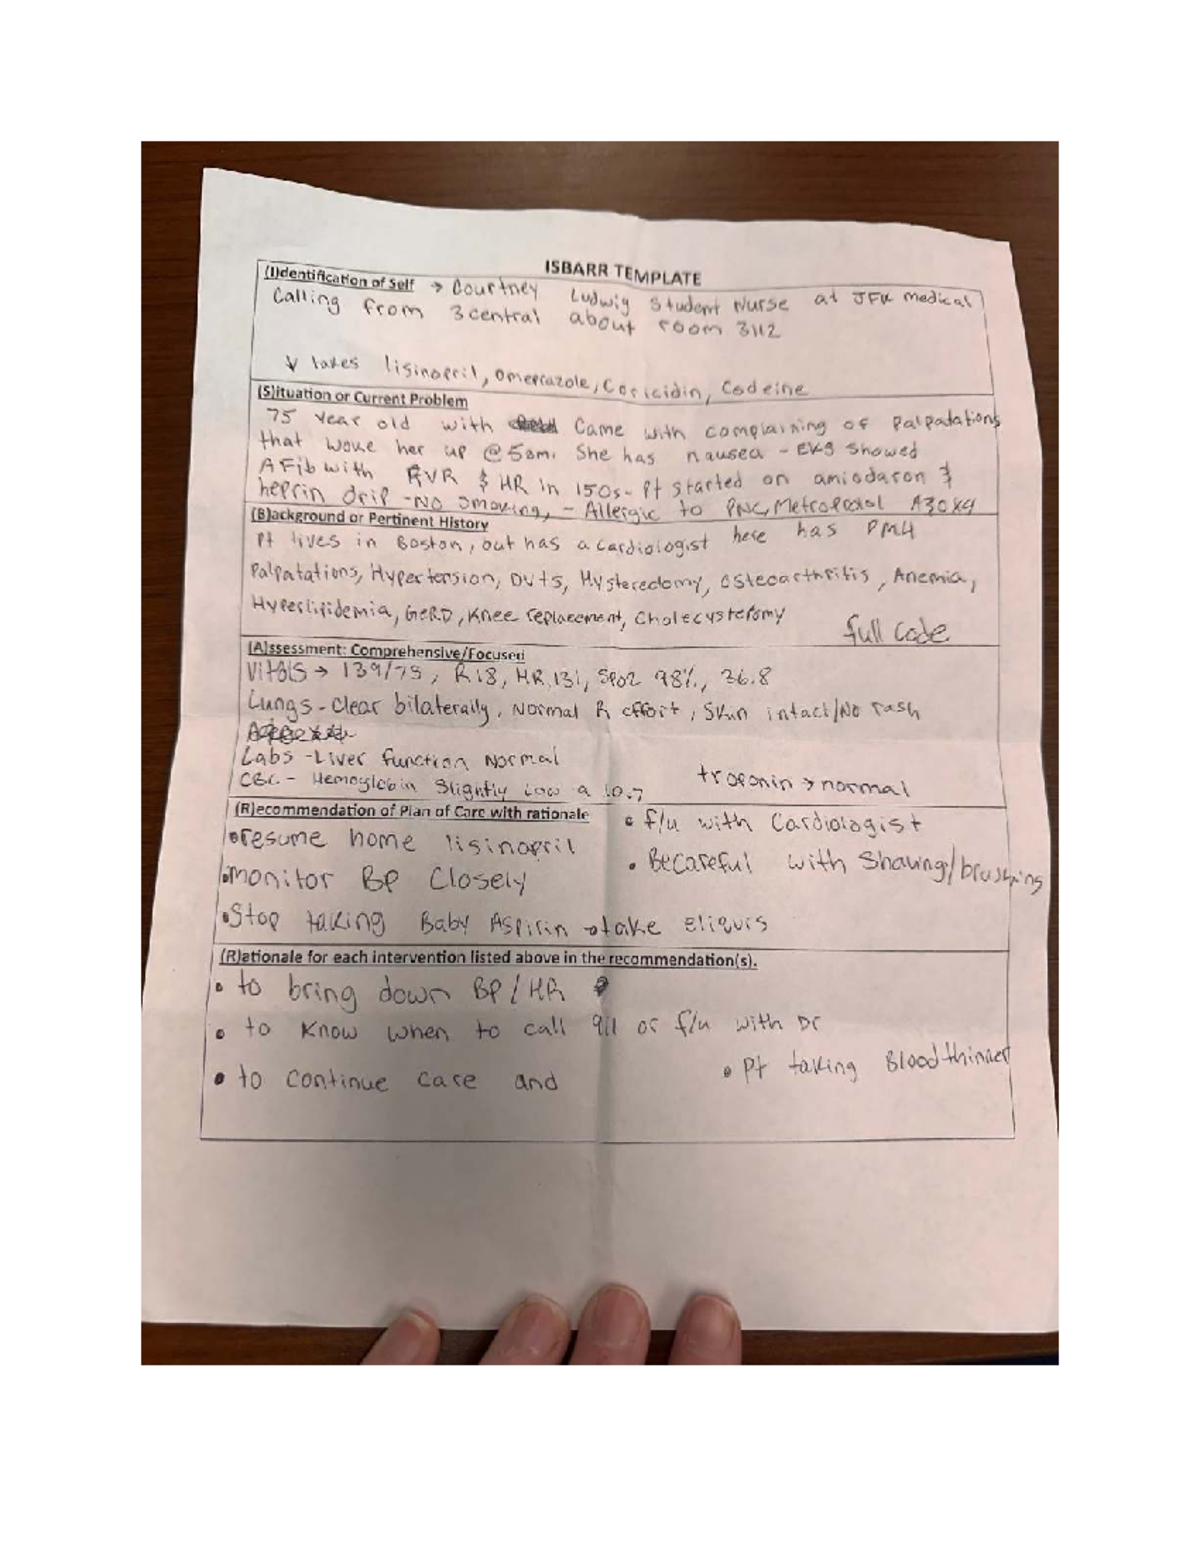 ISBARR TEMPLATE
(I)dentification of Self → Courtney Ludwig Student Nurse at JFK medical
Calling from 3central about room 3112
↓ takes lisinopril, omeprazole, Coricidin, Codeine
(S)ituation or Current Problem
75 year old with Came with complaining of palpadations
that woke her up @5am. She has nausea - EKG showed
AFib with RVR & HR in 150s - Pt started on amiodaron &
heprin drip - No smoking, - Allergic to PNC, Metropodol A30x4
(B)ackground or Pertinent History
Pt lives in Boston, but has a cardiologist here has PMH
Palpatations, Hypertension, DVTs, Hysteredomy, osteoarthritis, Anemia,
Hyperlipidemia, GERD, Knee replacement, Cholecysteromy
full code
(A)ssessment: Comprehensive/Focused
Vitals → 139/75, R18, HR 131, Spo2 98%, 36.8
Lungs - Clear bilaterally, Normal R effort, Skin intact/No rash
Labs - Liver function Normal
CBC - Hemoglobin Slightly Low a 10.7 troponin → normal
(R)ecommendation of Plan of Care with rationale
• resume home lisinopril • f/u with Cardiologist
• monitor BP Closely • Becareful with Shaving/brushing
• Stop taking Baby Aspirin → take eliquis
(R)ationale for each intervention listed above in the recommendation(s).
• to bring down BP/HR
• to know when to call 911 or f/u with Dr
• to continue care and • Pt taking Bloodthinner